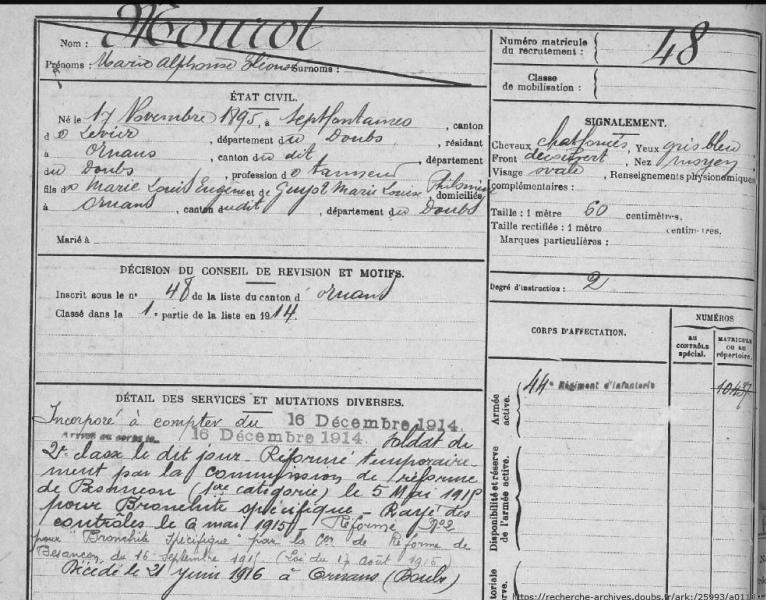 Nom : Mourot
Prénoms : Marie Alphonse Léon Surnoms :
ÉTAT CIVIL.
Né le 17 Novembre 1895, à Septfontaines, canton
d e Levier, département du Doubs, résidant
à Ornans, canton du dit, département
du Doubs, profession de tanneur
fils de Marie Louis Eugène et de Guyot Marie Louise Philomène domiciliés
à Ornans, canton dudit, département du Doubs
Marié à
DÉCISION DU CONSEIL DE REVISION ET MOTIFS.
Inscrit sous le n° 48 de la liste du canton d' Ornans
Classé dans la 1e partie de la liste en 1914.
DÉTAIL DES SERVICES ET MUTATIONS DIVERSES.
Incorporé à compter du 16 Décembre 1914.
Arrivé au corps le 16 Décembre 1914. Soldat de
2e classe le dit jour. Réformé temporaire-
ment par la commission de réforme
de Besançon (1ère catégorie) le 5 Mai 1915
pour Bronchite spécifique - Rayé des
contrôles le 6 mai 1915. Réformé N°2
pour "Bronchite Spécifique" par la Con de Réforme de
Besançon du 16 Septembre 1915 (Loi du 17 Août 1915)
Décédé le 21 juin 1916 à Ornans (Doubs)
Numéro matricule du recrutement : 48
Classe de mobilisation :
SIGNALEMENT.
Cheveux chat foncés, Yeux gris bleu
Front découvert, Nez moyen
Visage ovale, Renseignements physionomiques
complémentaires :
Taille : 1 mètre 60 centimètres.
Taille rectifiée : 1 mètre centimètres.
Marques particulières :
Degré d'instruction : 2
CORPS D'AFFECTATION.
NUMÉROS
AU CONTRÔLE spécial.
MATRICULE OU AU répertoire.
Armée active.
44e Régiment d'Infanterie
10437
Disponibilité et réserve de l'armée active.
toriale
rve.
https://recherche-archives.doubs.fr/ark:/25993/a011